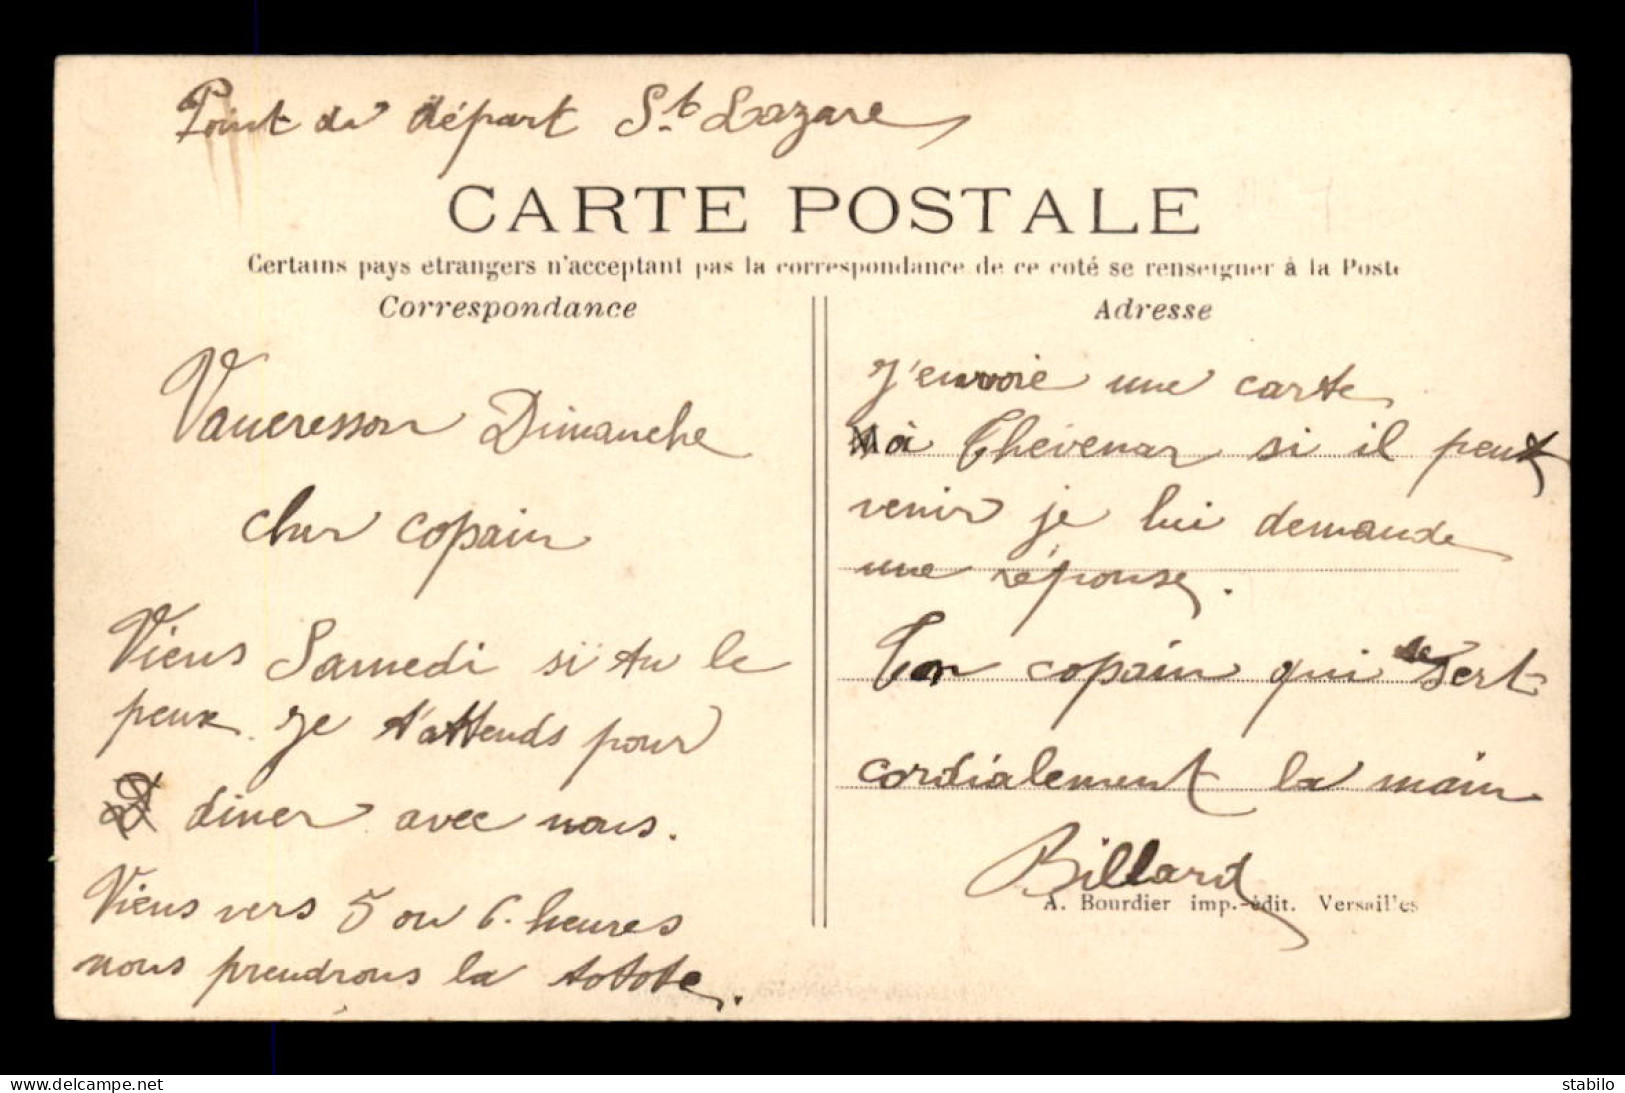 Point de départ St Lazare
CARTE POSTALE
Certains pays etrangers n'acceptant pas la correspondance de ce coté se renseigner à la Poste
Correspondance
Vaucresson Dimanche
cher copain
Viens Samedi si tu le
peux. Je t'attends pour
diner avec nous.
Viens vers 5 ou 6 heures
nous prendrons la totote.
Adresse
J'envoie une carte
à Thévenar si il peut
venir je lui demande
une réponse.
Ton copain qui te sert
cordialement la main
Billard
A. Bourdier imp.-édit. Versailles
delcampe.net
stabilo